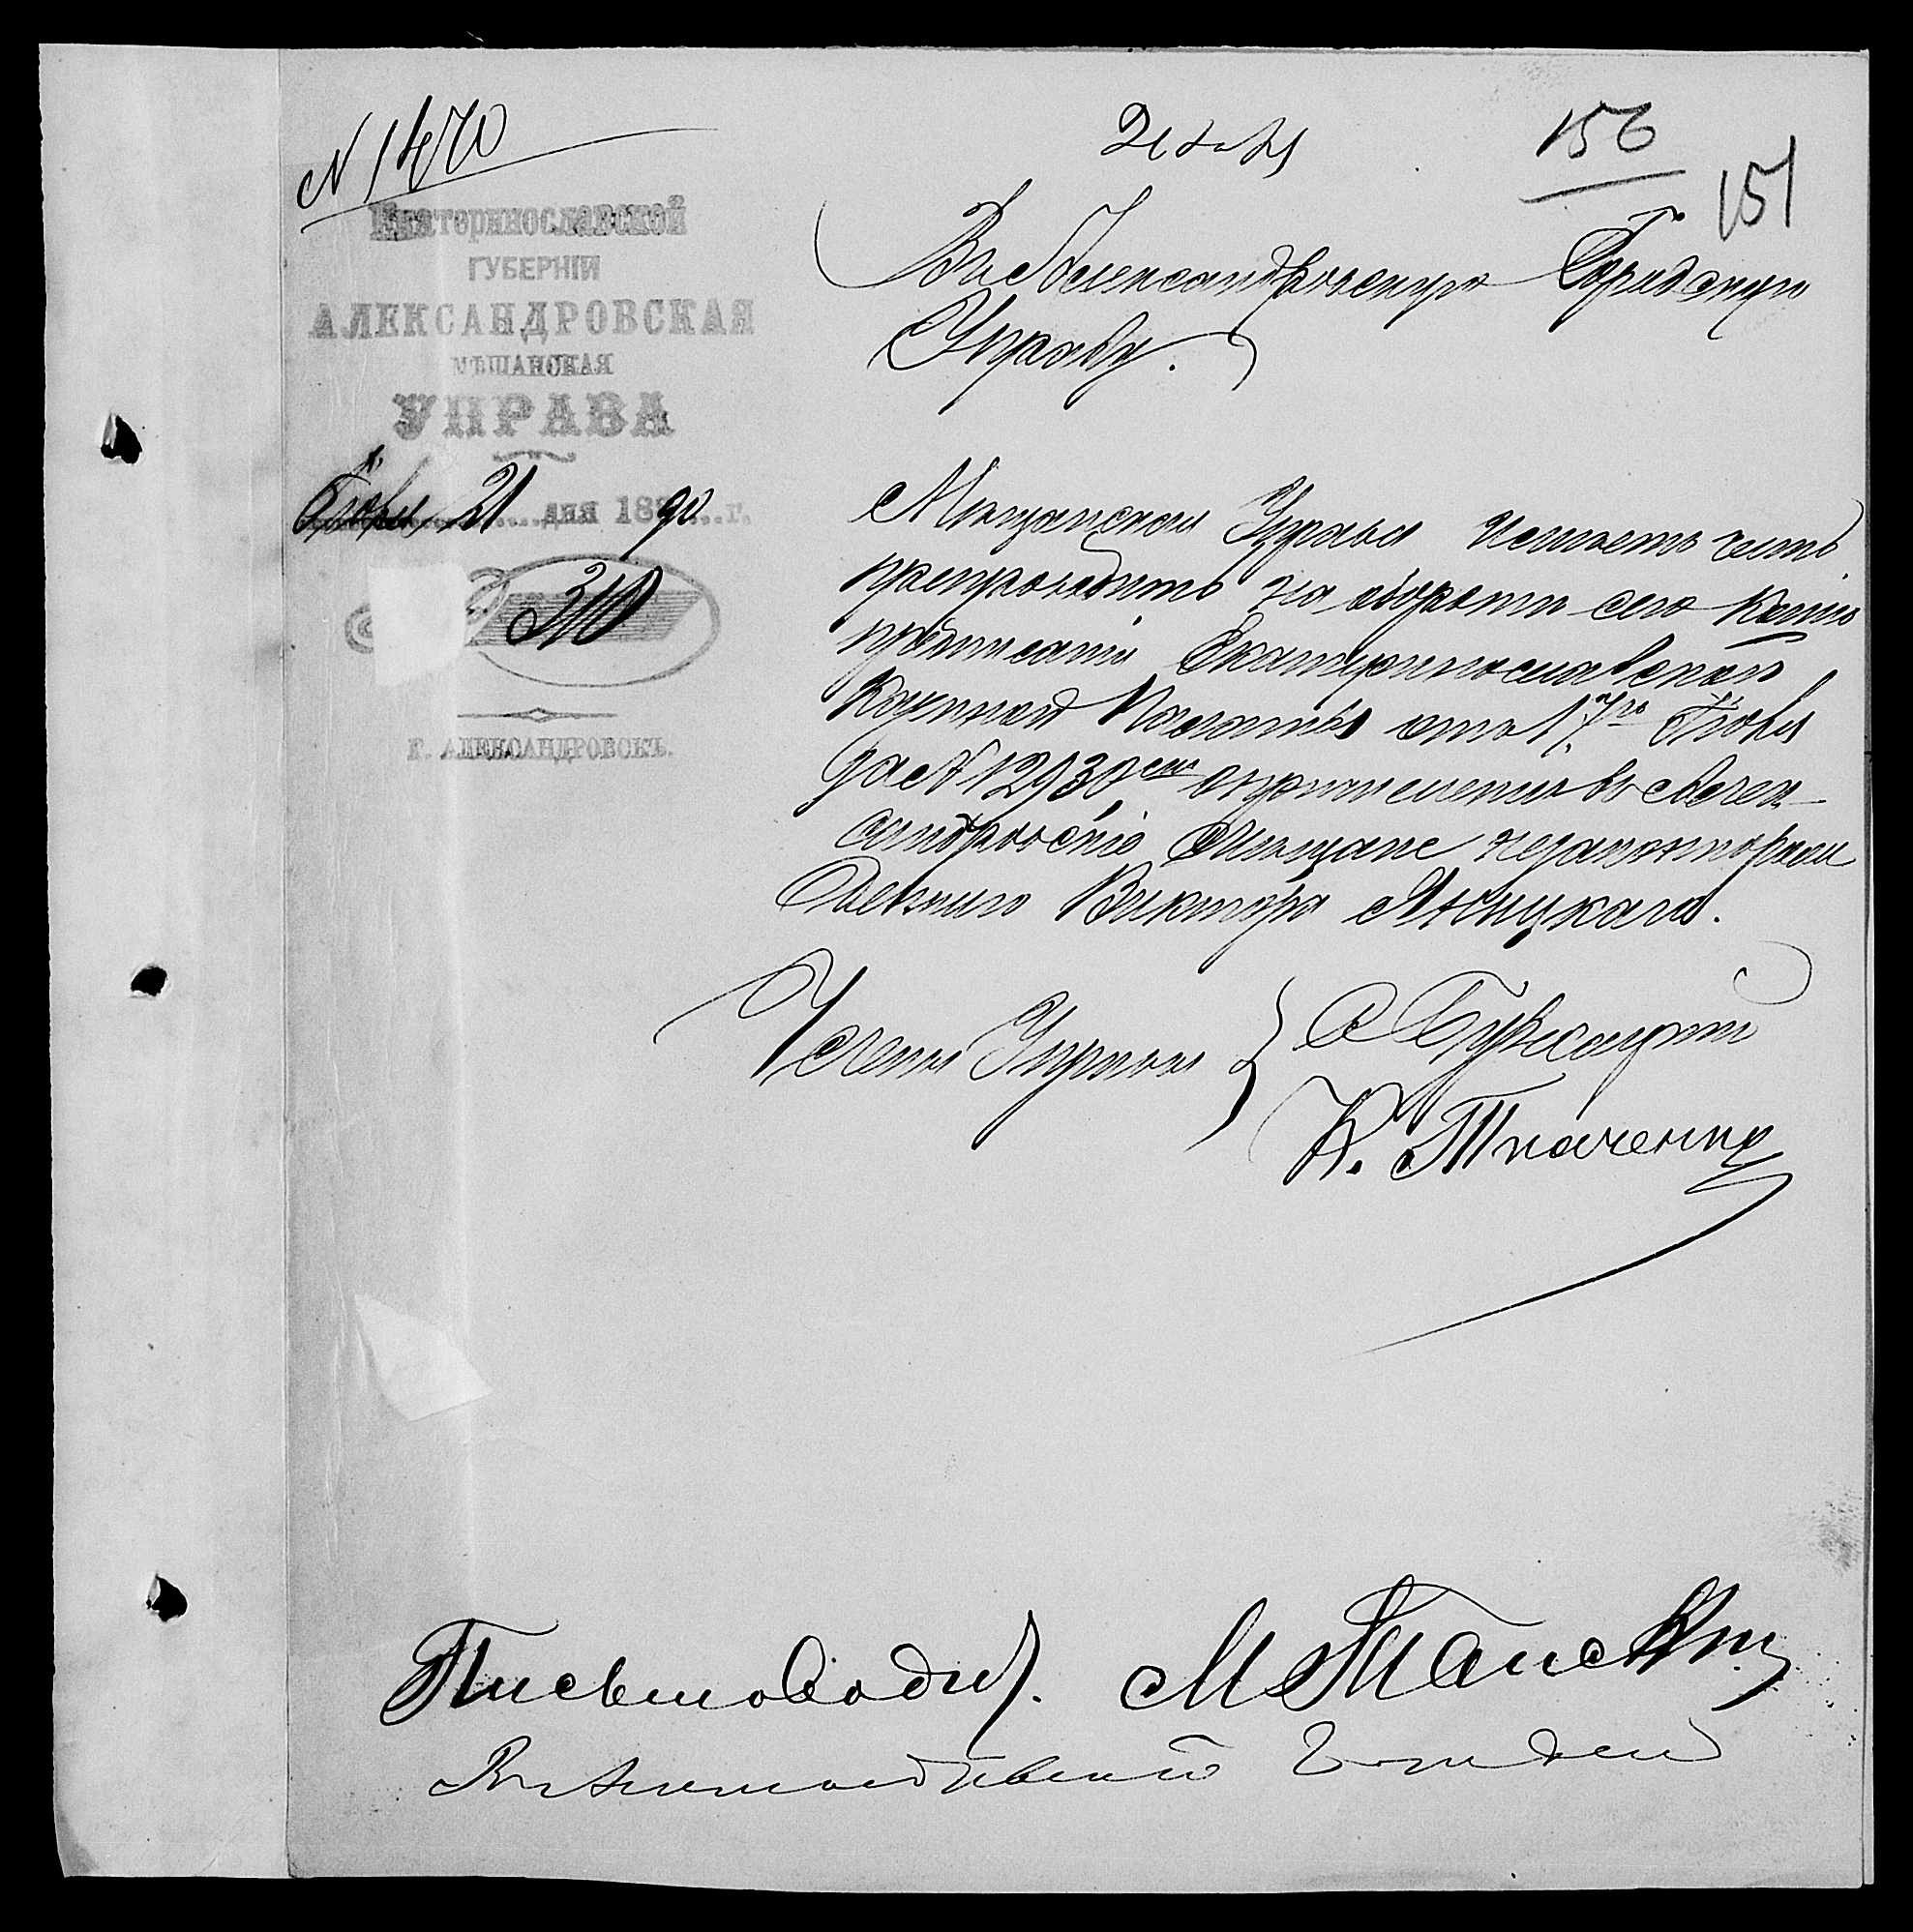 N 1470
156
151
Екатеринославской
ГУБЕРНІИ
АЛЕКСАНДРОВСКАЯ
МѢЩАНСКАЯ
УПРАВА
21 дня 1890 г.
310
Г. АЛЕКСАНДРОВСКЪ.
Въ Александровскую Городскую
Управу.
Мѣщанская Управа имѣетъ честь
препроводить на оборотѣ сего копію
предписанія Екатеринославской
Казенной Палаты отъ 17го
за N 12930 о причисленіи въ Алек-
сандровскіе Мѣщане
Виктора
Члены Управы
К. Ткаченко
Письмоводит. М Танскій